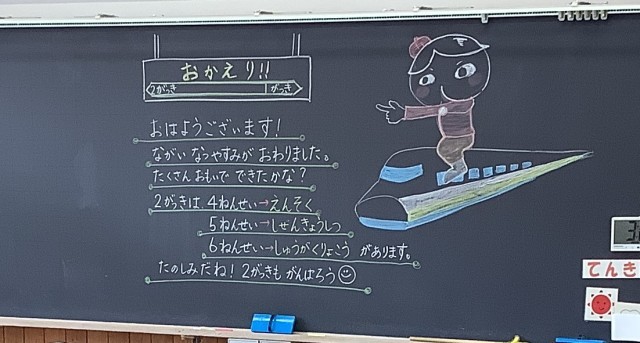 おかえり!!
2がっき 1がっき
おはようございます!
ながい なつやすみが おわりました。
たくさん おもいで できたかな?
2がっきは 4ねんせい→えんそく
5ねんせい→しぜんきょうしつ
6ねんせい→しゅうがくりょこう があります。
たのしみだね! 2がっきも がんばろう
てんき